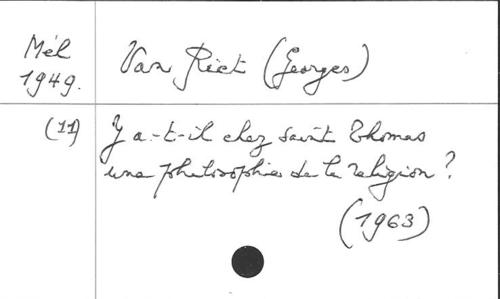 Mél
1949.
Van Riet (Georges)
(11)
Y a-t-il chez saint Thomas
une philosophie de la religion ?
(1963)